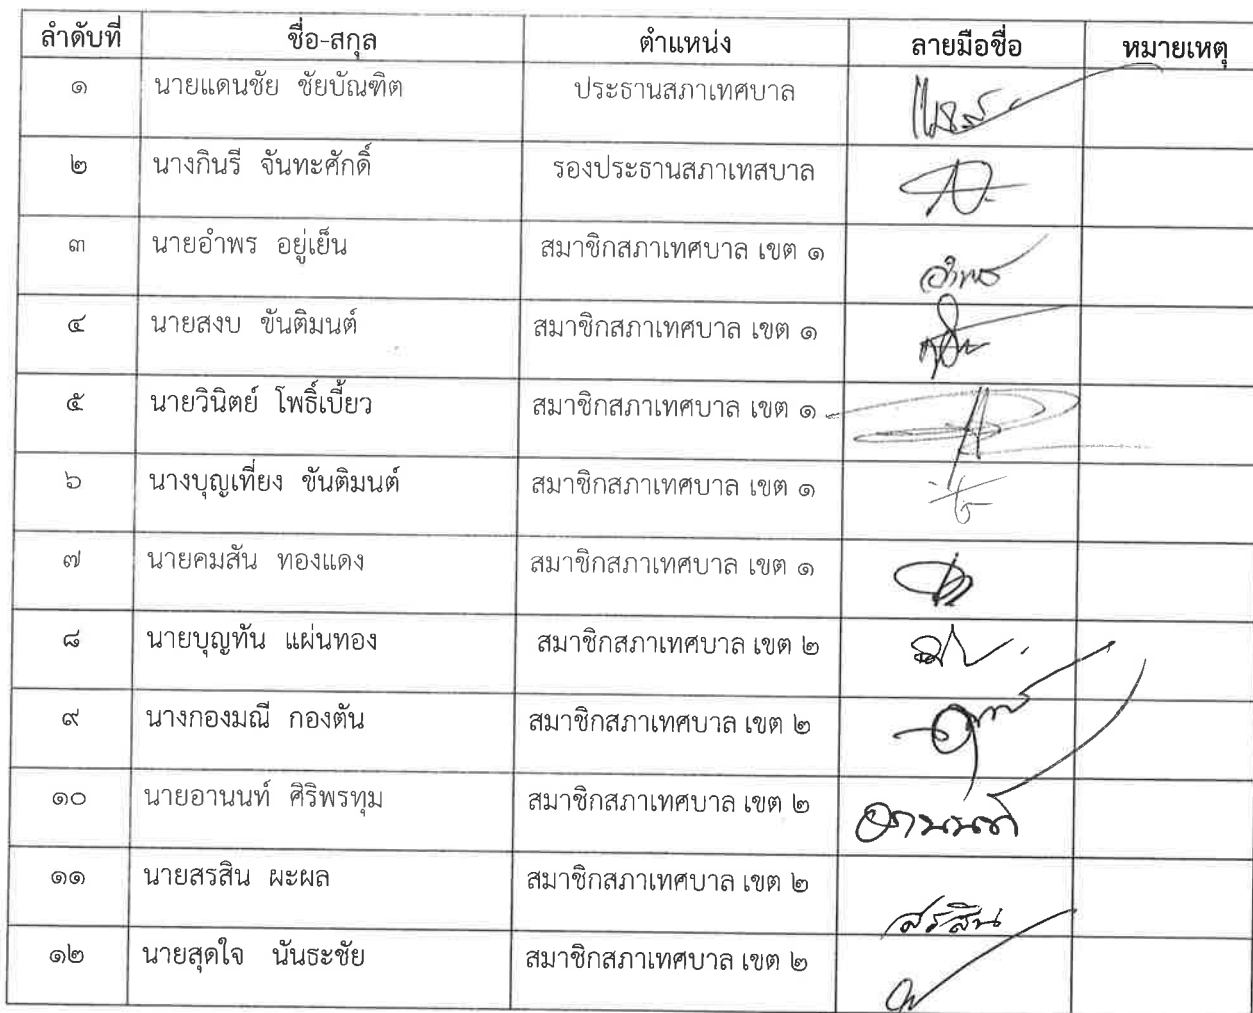 ลำดับที่ ชื่อ-สกุล ตำแหน่ง ลายมือชื่อ หมายเหตุ
๑ นายแดนชัย ชัยบัณฑิต ประธานสภาเทศบาล
๒ นางกินรี จันทะศักดิ์ รองประธานสภาเทสบาล
๓ นายอำพร อยู่เย็น สมาชิกสภาเทศบาล เขต ๑ อำพร
๔ นายสงบ ขันติมนต์ สมาชิกสภาเทศบาล เขต ๑
๕ นายวินิตย์ โพธิ์เบี้ยว สมาชิกสภาเทศบาล เขต ๑
๖ นางบุญเที่ยง ขันติมนต์ สมาชิกสภาเทศบาล เขต ๑
๗ นายคมสัน ทองแดง สมาชิกสภาเทศบาล เขต ๑
๘ นายบุญทัน แผ่นทอง สมาชิกสภาเทศบาล เขต ๒
๙ นางกองมณี กองตัน สมาชิกสภาเทศบาล เขต ๒
๑๐ นายอานนท์ ศิริพรทุม สมาชิกสภาเทศบาล เขต ๒ อานนท์
๑๑ นายสรสิน ผะผล สมาชิกสภาเทศบาล เขต ๒ สรสิน
๑๒ นายสุดใจ นันธะชัย สมาชิกสภาเทศบาล เขต ๒